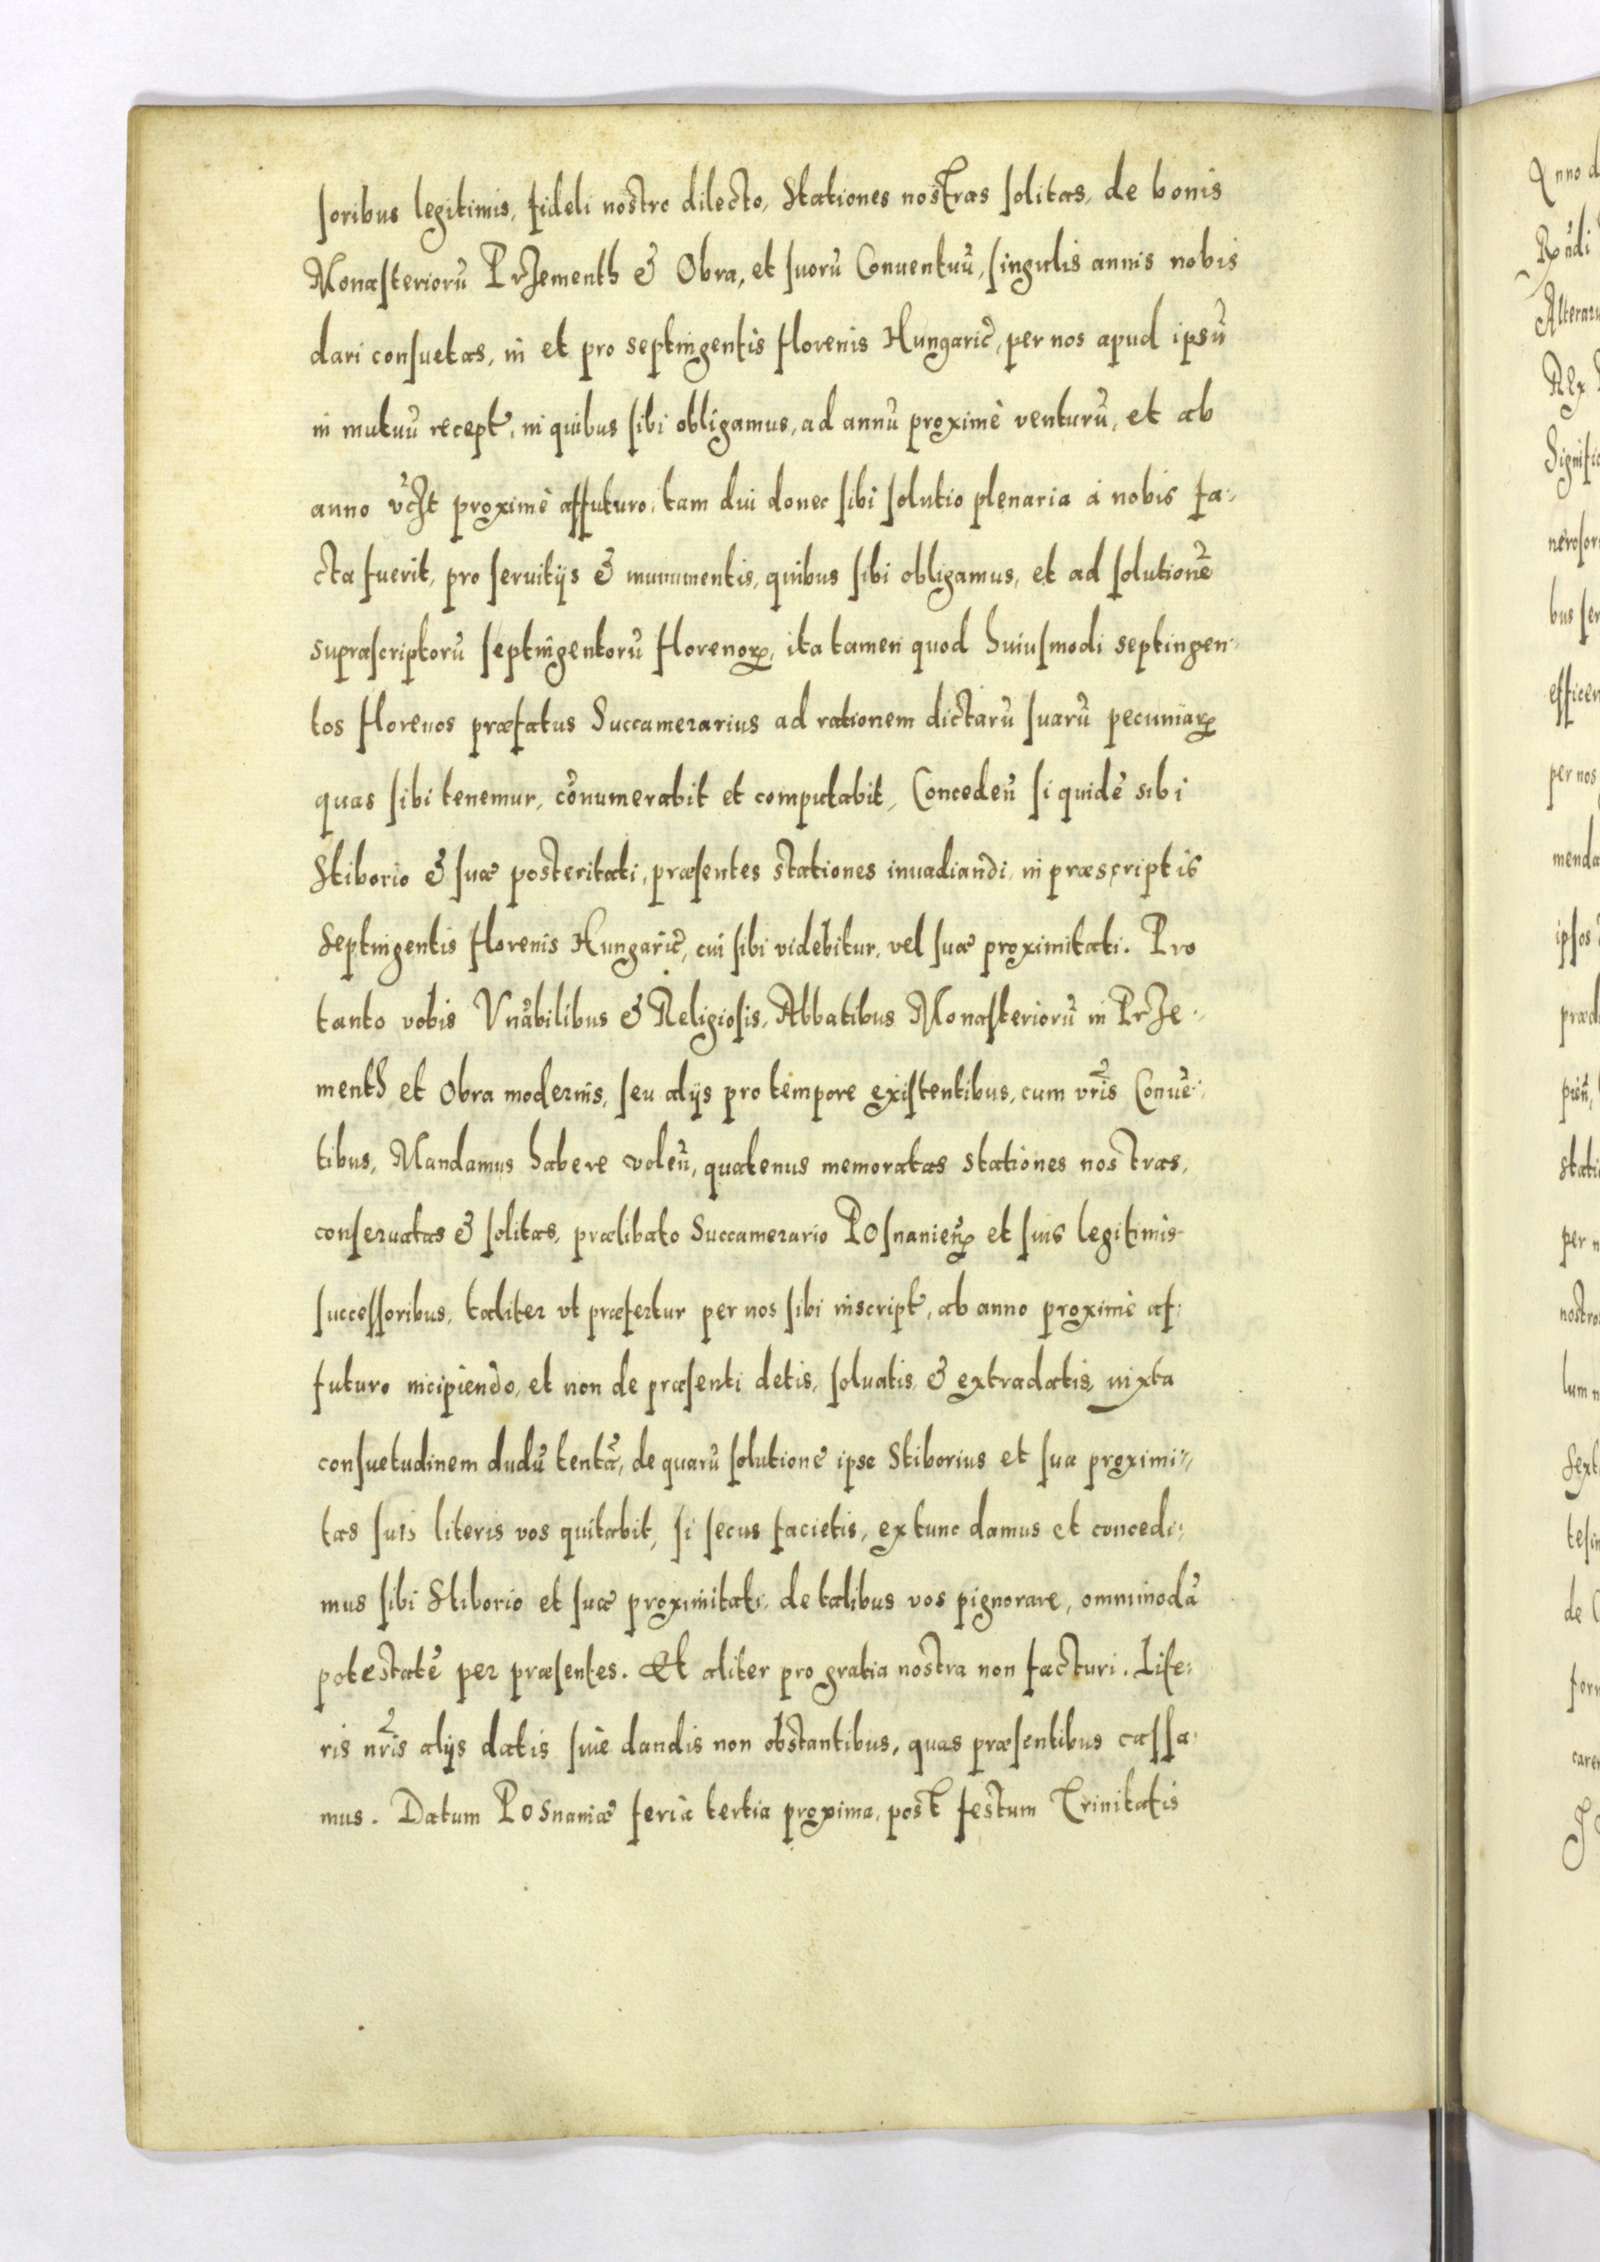 soribus legitimis, fideli nostro dilecto, Stationes nostras solitas, de bonis
Monasterioru᷑ Przementh & Obra, et suoru᷑ Conuentuu᷑, singulis annis nobis
dari consuetas, in et pro septingentis florenis Hungaric᷑, per nos apud ipsu᷑
in mutuu᷑ recept᷑, in quibus sibi obligamus, ad annu᷑ proximè venturu᷑, et ab
anno proximè affuturo, tam diu donec sibi solutio plenaria à nobis fa:
cta fuerit, pro seruitijs & munimentis, quibus sibi obligamus, et ad solutione᷑
supræscriptoru᷑ septingentoru᷑ florenoꝝ, ita tamen quod huiusmodi septingen:
tos florenos præfatus Succamerarius ad rationem dictaru᷑ suaru᷑ pecuniaꝝ
quas sibi tenemur, co᷑numerabit et computabit, Conceden᷑ si quide᷑ sibi
Stiborio & suæ posteritati, præsentes stationes inuadiandi, in præscriptis
Septingentis florenis Hungaric᷑, cui sibi videbitur, vel suæ proximitati. Pro
tanto vobis Vna᷑bilibus & Religiosis, Abbatibus Monasterioru᷑ in Prze:
menth et Obra modernis, seu alijs pro tempore existentibus, cum vr᷑is Conue᷑:
tibus, Mandamus habere volen᷑, quatenus memoratas stationes nostras,
conseruatas & solitas, prælibato Succamerario Posnanien᷑ et suis legitimis
successoribus, taliter vt præfertur per nos sibi inscript᷑, ab anno proximè af:
futuro incipiendo, et non de præsenti detis, soluatis & extradatis, iuxta
consuetudinem dudu᷑ tenta᷑, de quaru᷑ solutione ipse Stiborius et sua proximi:
tas suis literis vos quitabit, si secus facietis, ex tunc damus et concedi:
mus sibi Stiborio et suæ proximitati, de talibus vos pignorare, omnimoda᷑
potestate᷑ per præsentes. Et aliter pro gratia nostra non facturi. Lite:
ris nr᷑is alijs datis siue dandis non obstantibus, quas præsentibus cassa:
mus. Datum Posnaniæ feria tertia proxima, post festum Trinitatis